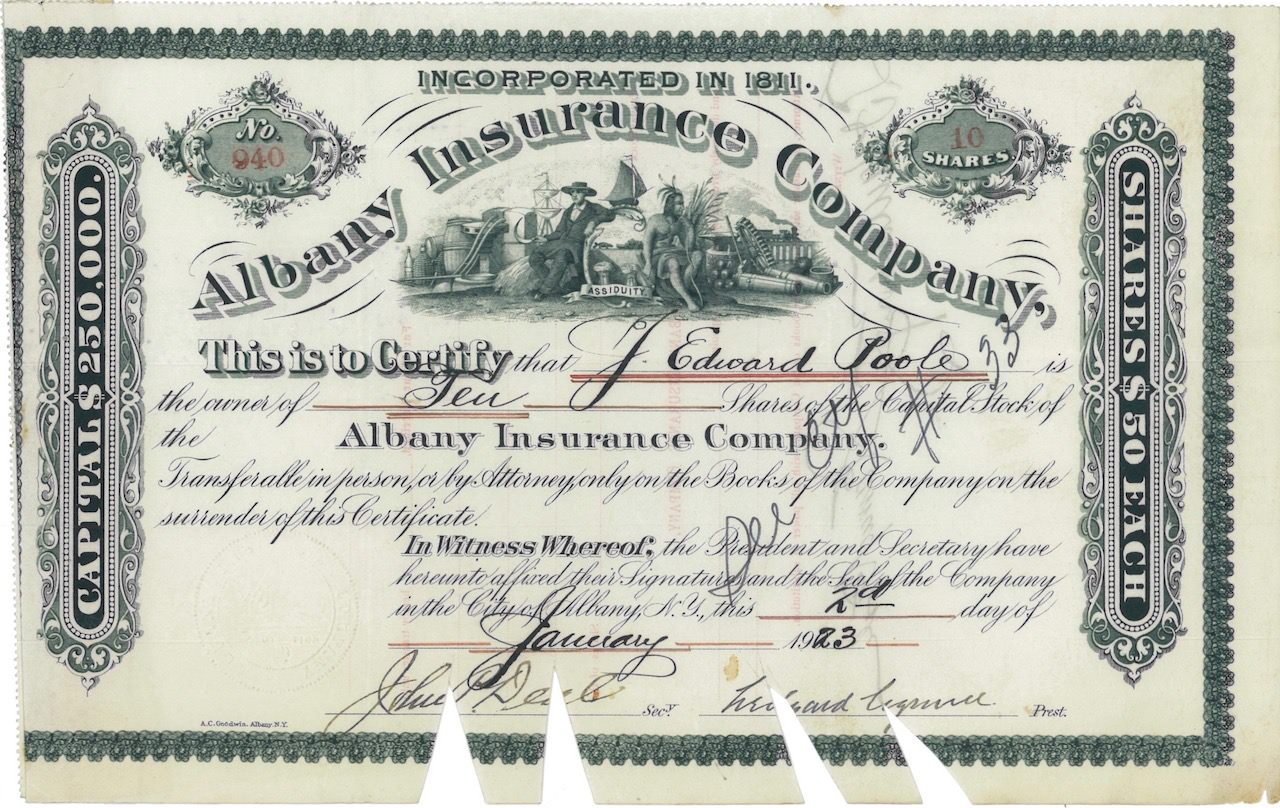 INCORPORATED IN 1811.
Albany Insurance Company,
No. 940
10 SHARES
CAPITAL $ 250,000.
SHARES $ 50 EACH
ASSIDUITY
This is to Certify that J. Edward Poole is
the owner of Ten Shares of the Capital Stock of
the Albany Insurance Company.
Transferable in person, or by Attorney, only on the Books of the Company on the
surrender of this Certificate.
In Witness Whereof, the President and Secretary have
hereunto affixed their Signatures and the Seal of the Company
in the City of Albany, N.Y., this 2nd day of
January 1923
John Secy. Prest.
A.C. Goodwin. Albany. N.Y.